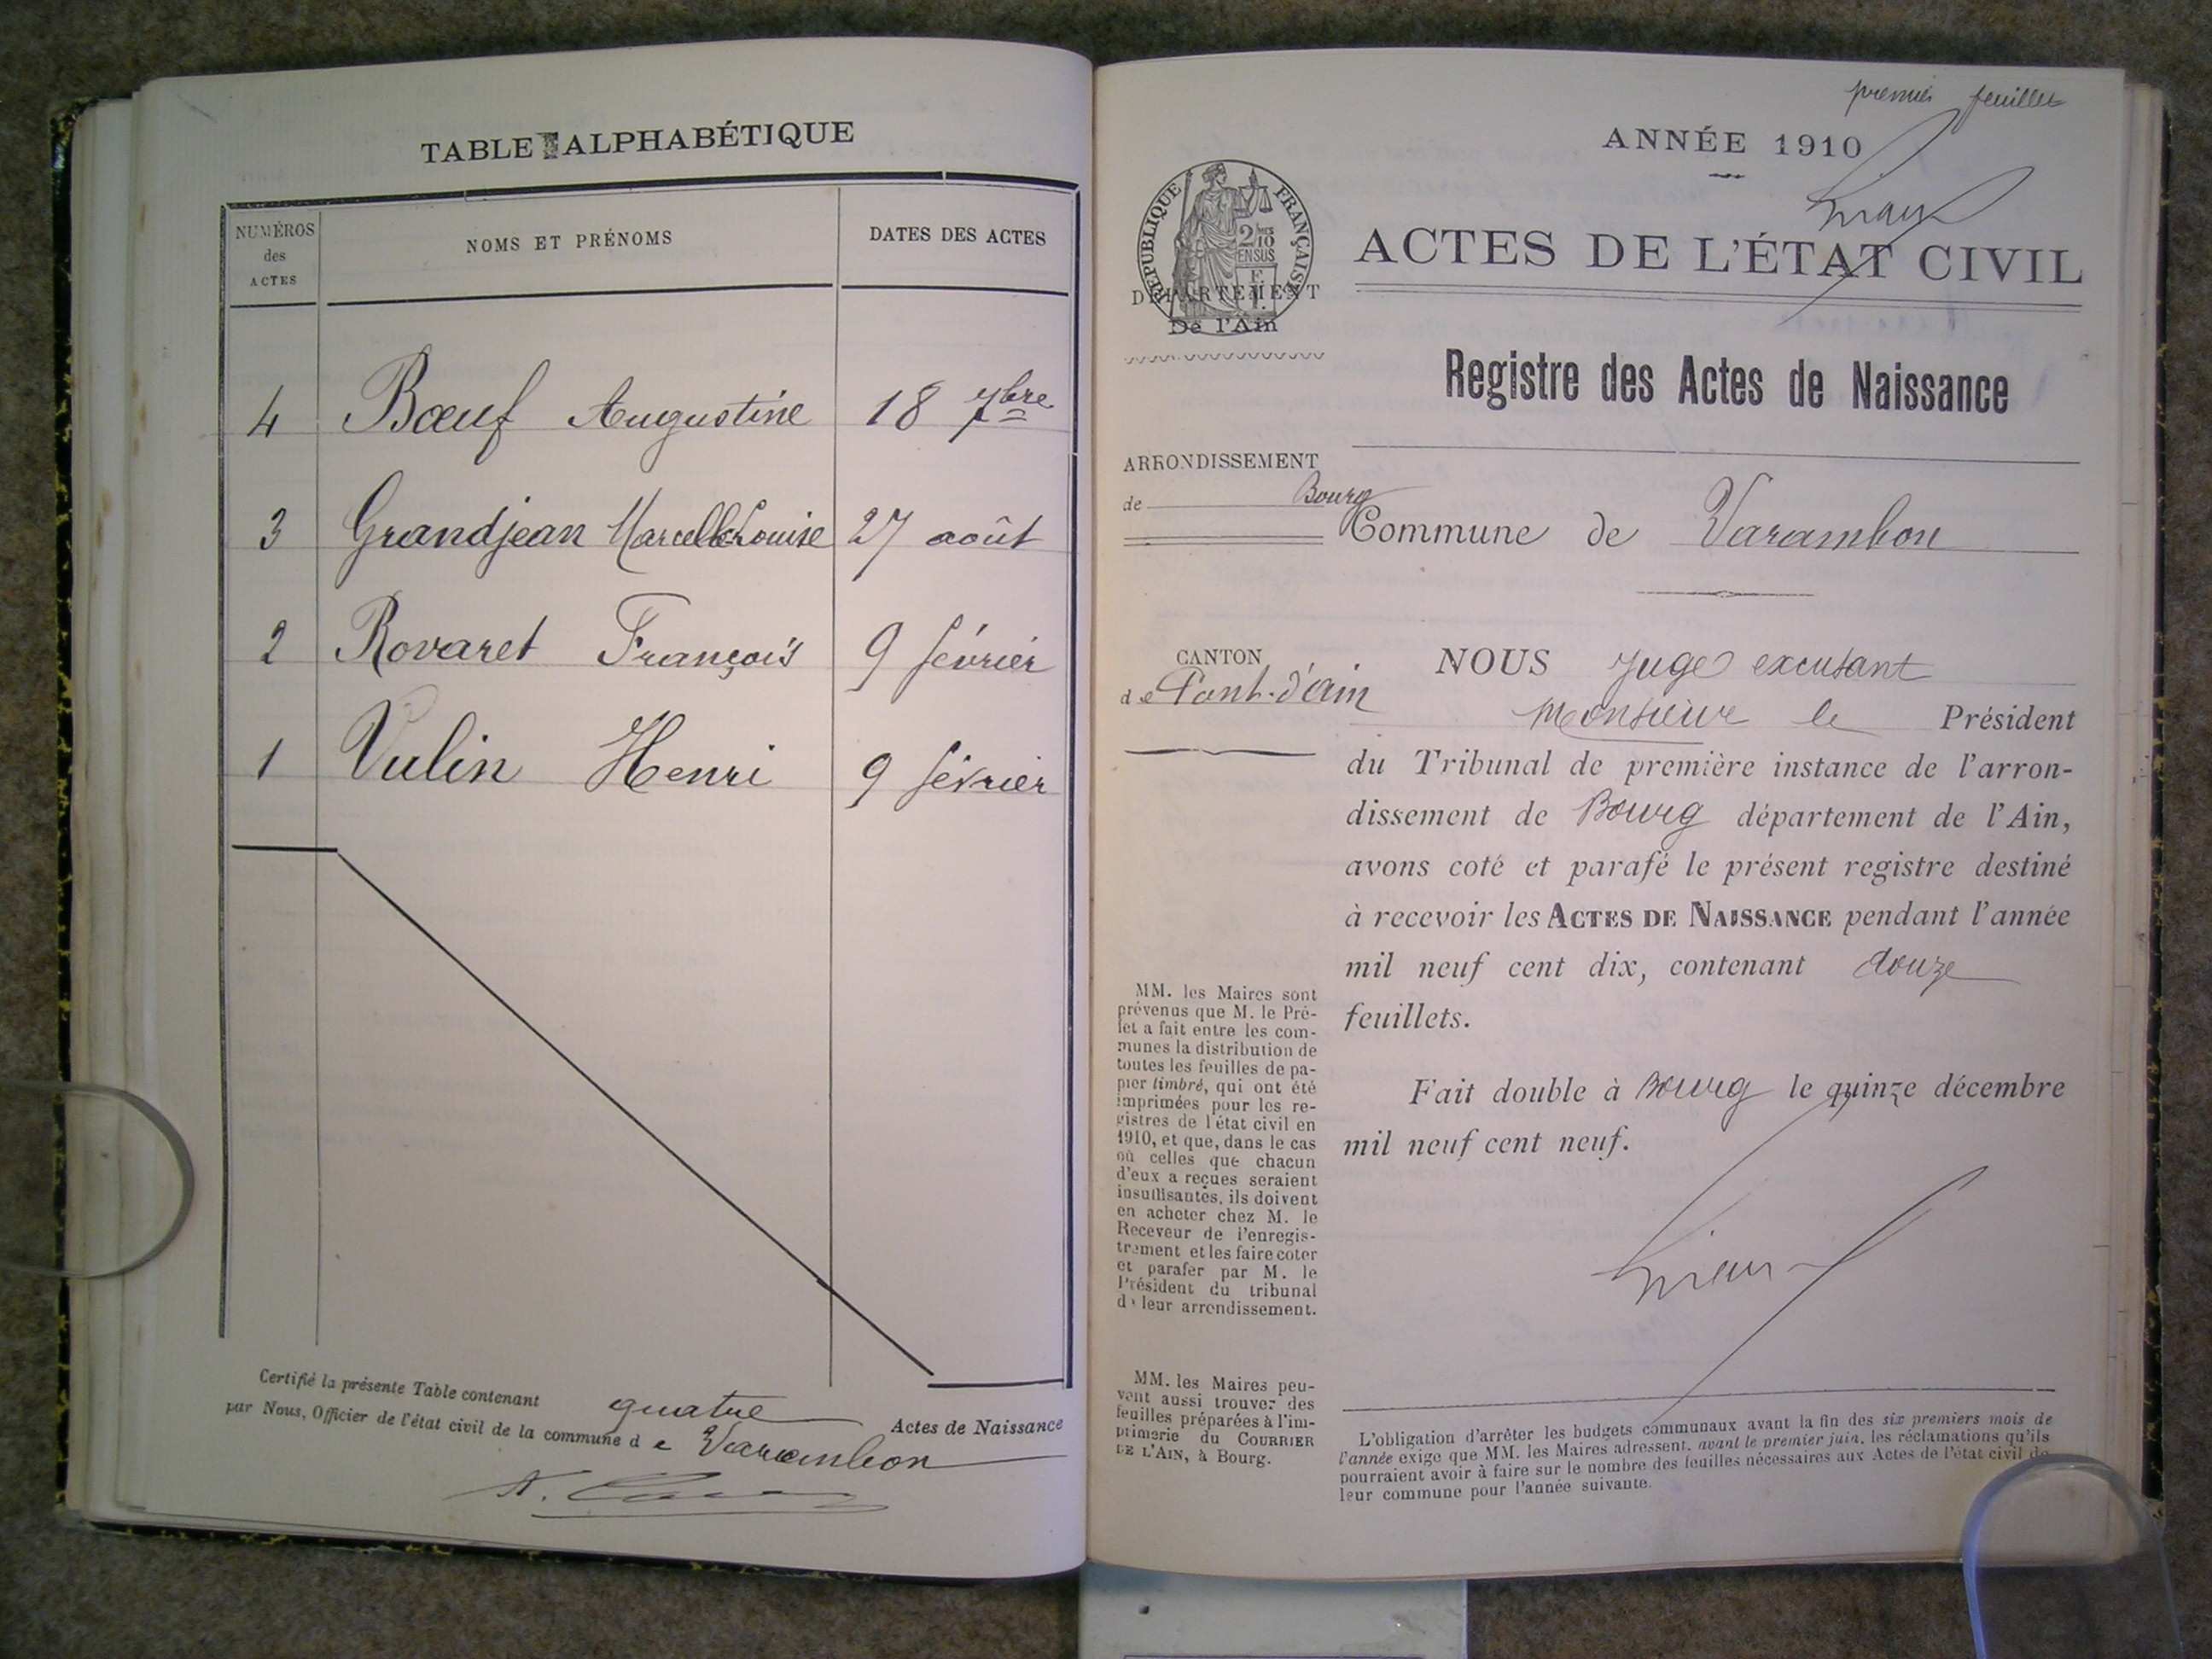 TABLE ALPHABÉTIQUE
NUMÉROS
des
ACTES
NOMS ET PRÉNOMS
DATES DES ACTES
4 Bœuf Augustine 18 7bre
3 Grandjean Marcelle Louise 27 août
2 Rovaret François 9 février
1 Vulin Henri 9 février
Certifié la présente Table contenant quatre Actes de Naissance
par Nous, Officier de l'état civil de la commune de Varambon
premier feuillet
ANNÉE 1910
RÉPUBLIQUE FRANÇAISE
2/10
EN SUS
DÉPARTEMENT
De l'Ain
ACTES DE L'ÉTAT CIVIL
Registre des Actes de Naissance
ARRONDISSEMENT
de Bourg
Commune de Varambon
CANTON
de Pont-d'Ain
NOUS Juge excusant
Monsieur le Président
du Tribunal de première instance de l'arron-
dissement de Bourg département de l'Ain,
avons coté et parafé le présent registre destiné
à recevoir les ACTES DE NAISSANCE pendant l'année
mil neuf cent dix, contenant douze
feuillets.
Fait double à Bourg le quinze décembre
mil neuf cent neuf.
MM. les Maires sont
prévenus que M. le Pré-
fet a fait entre les com-
munes la distribution de
toutes les feuilles de pa-
pier timbré, qui ont été
imprimées pour les re-
gistres de l'état civil en
1910, et que, dans le cas
où celles que chacun
d'eux a reçues seraient
insuffisantes, ils doivent
en acheter chez M. le
Receveur de l'enregis-
trement et les faire coter
et parafer par M. le
Président du tribunal
de leur arrondissement.
MM. les Maires peu-
vent aussi trouver des
feuilles préparées à l'im-
primerie du COURRIER
DE L'AIN, à Bourg.
L'obligation d'arrêter les budgets communaux avant la fin des six premiers mois de
l'année exige que MM. les Maires adressent, avant le premier juin, les réclamations qu'ils
pourraient avoir à faire sur le nombre des feuilles nécessaires aux Actes de l'état civil de
leur commune pour l'année suivante.